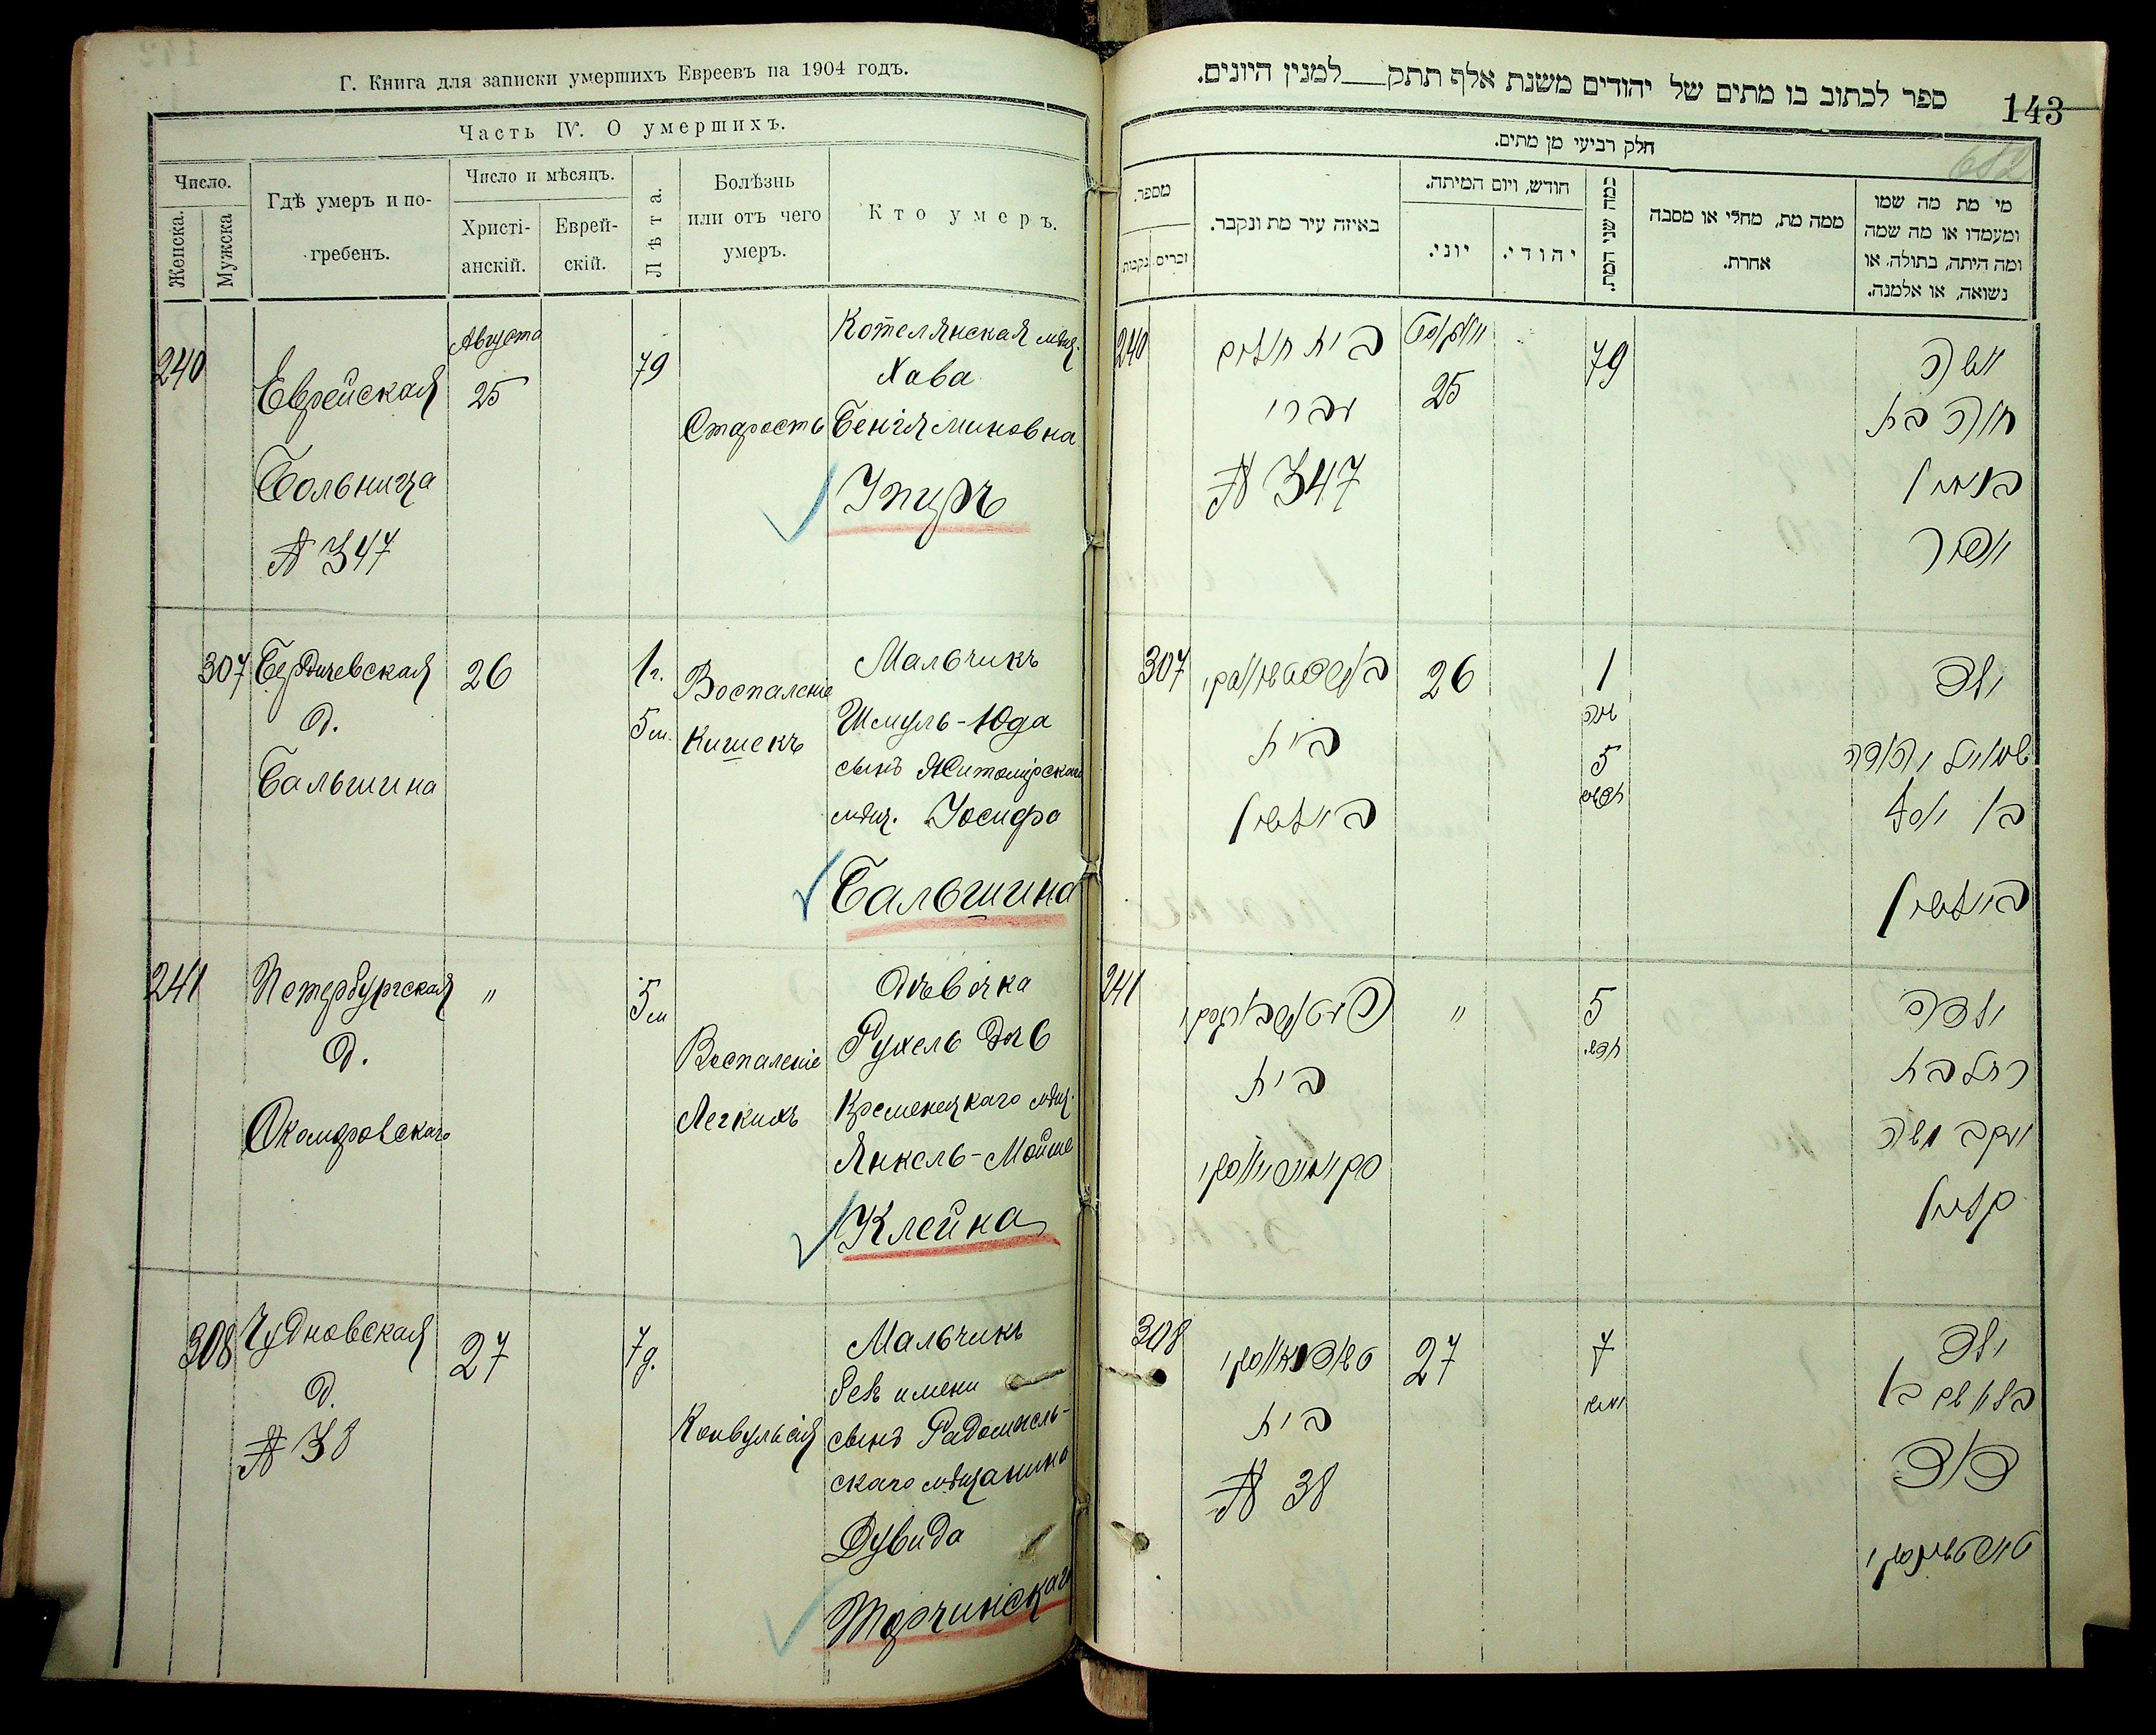 Г. Книга для записки умершихъ Евреевъ на 1904 годъ.
Часть IV. О умершихъ.
Число.
Женска.
Мужска
Гдѣ умеръ и по-
гребенъ.
Число и мѣсяцъ.
Христі-
анскій.
Еврей-
скій.
Лѣта.
Болѣзнь
или отъ чего
умеръ.
Кто умеръ.
240
Еврейская
Больница
№ 347
Августа
25
79
Старость
Котелянская мѣщ.
Хава
Беніяминовна
307
Бердичевская
д.
Бальшина
26
1 г.
5 м.
Воспаленіе
Кишекъ
Мальчикъ
Шмуль-Юда
сынъ Житомірскаго
мѣщ. Іосифа
Бальшина
241
Петербургская
д.
"
5 м
Воспаленіе
Легкихъ
Дѣвочка
Рухель дчь
Кременецкаго мѣщ.
Янкель-Мойше
Клейна
308
Чудновская
д.
№ 38
27
7 д.
Конвульсія
Мальчикъ
безъ имени
сынъ Радомысль-
скаго мѣщанина
Дувида
Торчинскаго
ספר לכתוב בו מתים של יהודים משנת אלף תתק למנין היונים.
143
682
חלק רביעי מן מתים.
מספר.
זכרים
נקבות
באיזה עיר מת ונקבר.
חודש, ויום המיתה.
יוני.
יהודי.
כמה שני המת.
ממה מת, מחלי או מסבה
אחרת.
מי מת מה שמו
ומעמדו או מה שמה
ומה היתה, בתולה, או
נשואה, או אלמנה.
240
בית חולים
עברי
№ 347
25
79
אשה
חוה בת
בנימין
307
בית
ביאלשין
26
1
שנה
5
חדשים
ילד
שמואל יהודה
בן יוסף
ביאלשין
241
בית
"
5
חדשי
ילדה
רחל בת
יעקב משה
קליין
308
בית
№ 38
27
7
ימים
ילד
בלי שם בן
דוד